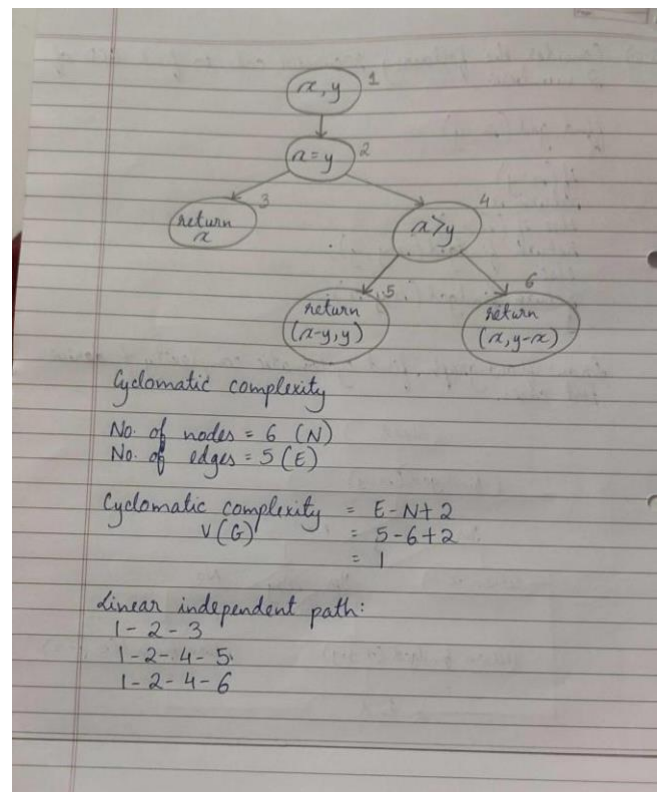 x, y 1
x = y 2
3
return
x
4
x>y
5
return
(x-y, y)
6
return
(x, y-x)
Cyclomatic complexity
No. of nodes = 6 (N)
No. of edges = 5 (E)
Cyclomatic complexity = E-N+2
V(G) = 5-6+2
= 1
Linear independent path:
1-2-3
1-2-4-5
1-2-4-6